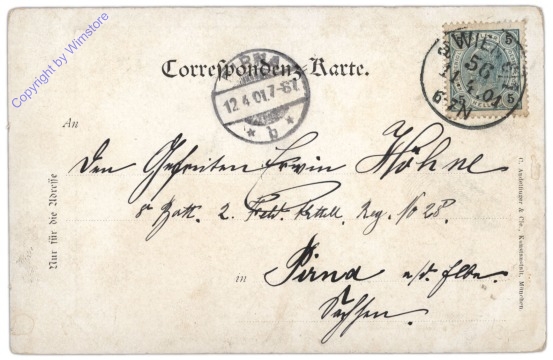 Copyright by Wimstore
Correspondenz-Karte.
PIRNA
12.4.01.7-8V.
* b *
3/2 WIEN
56
11.4.01
6-7N
5
HELLER
5
An
Den Gefreiten Erwin Höhne
8 Batt. 2. Feld. Artill. Reg. No 28.
in Pirna a/d. Elbe.
Sachsen.
Nur für die Adresse
München.